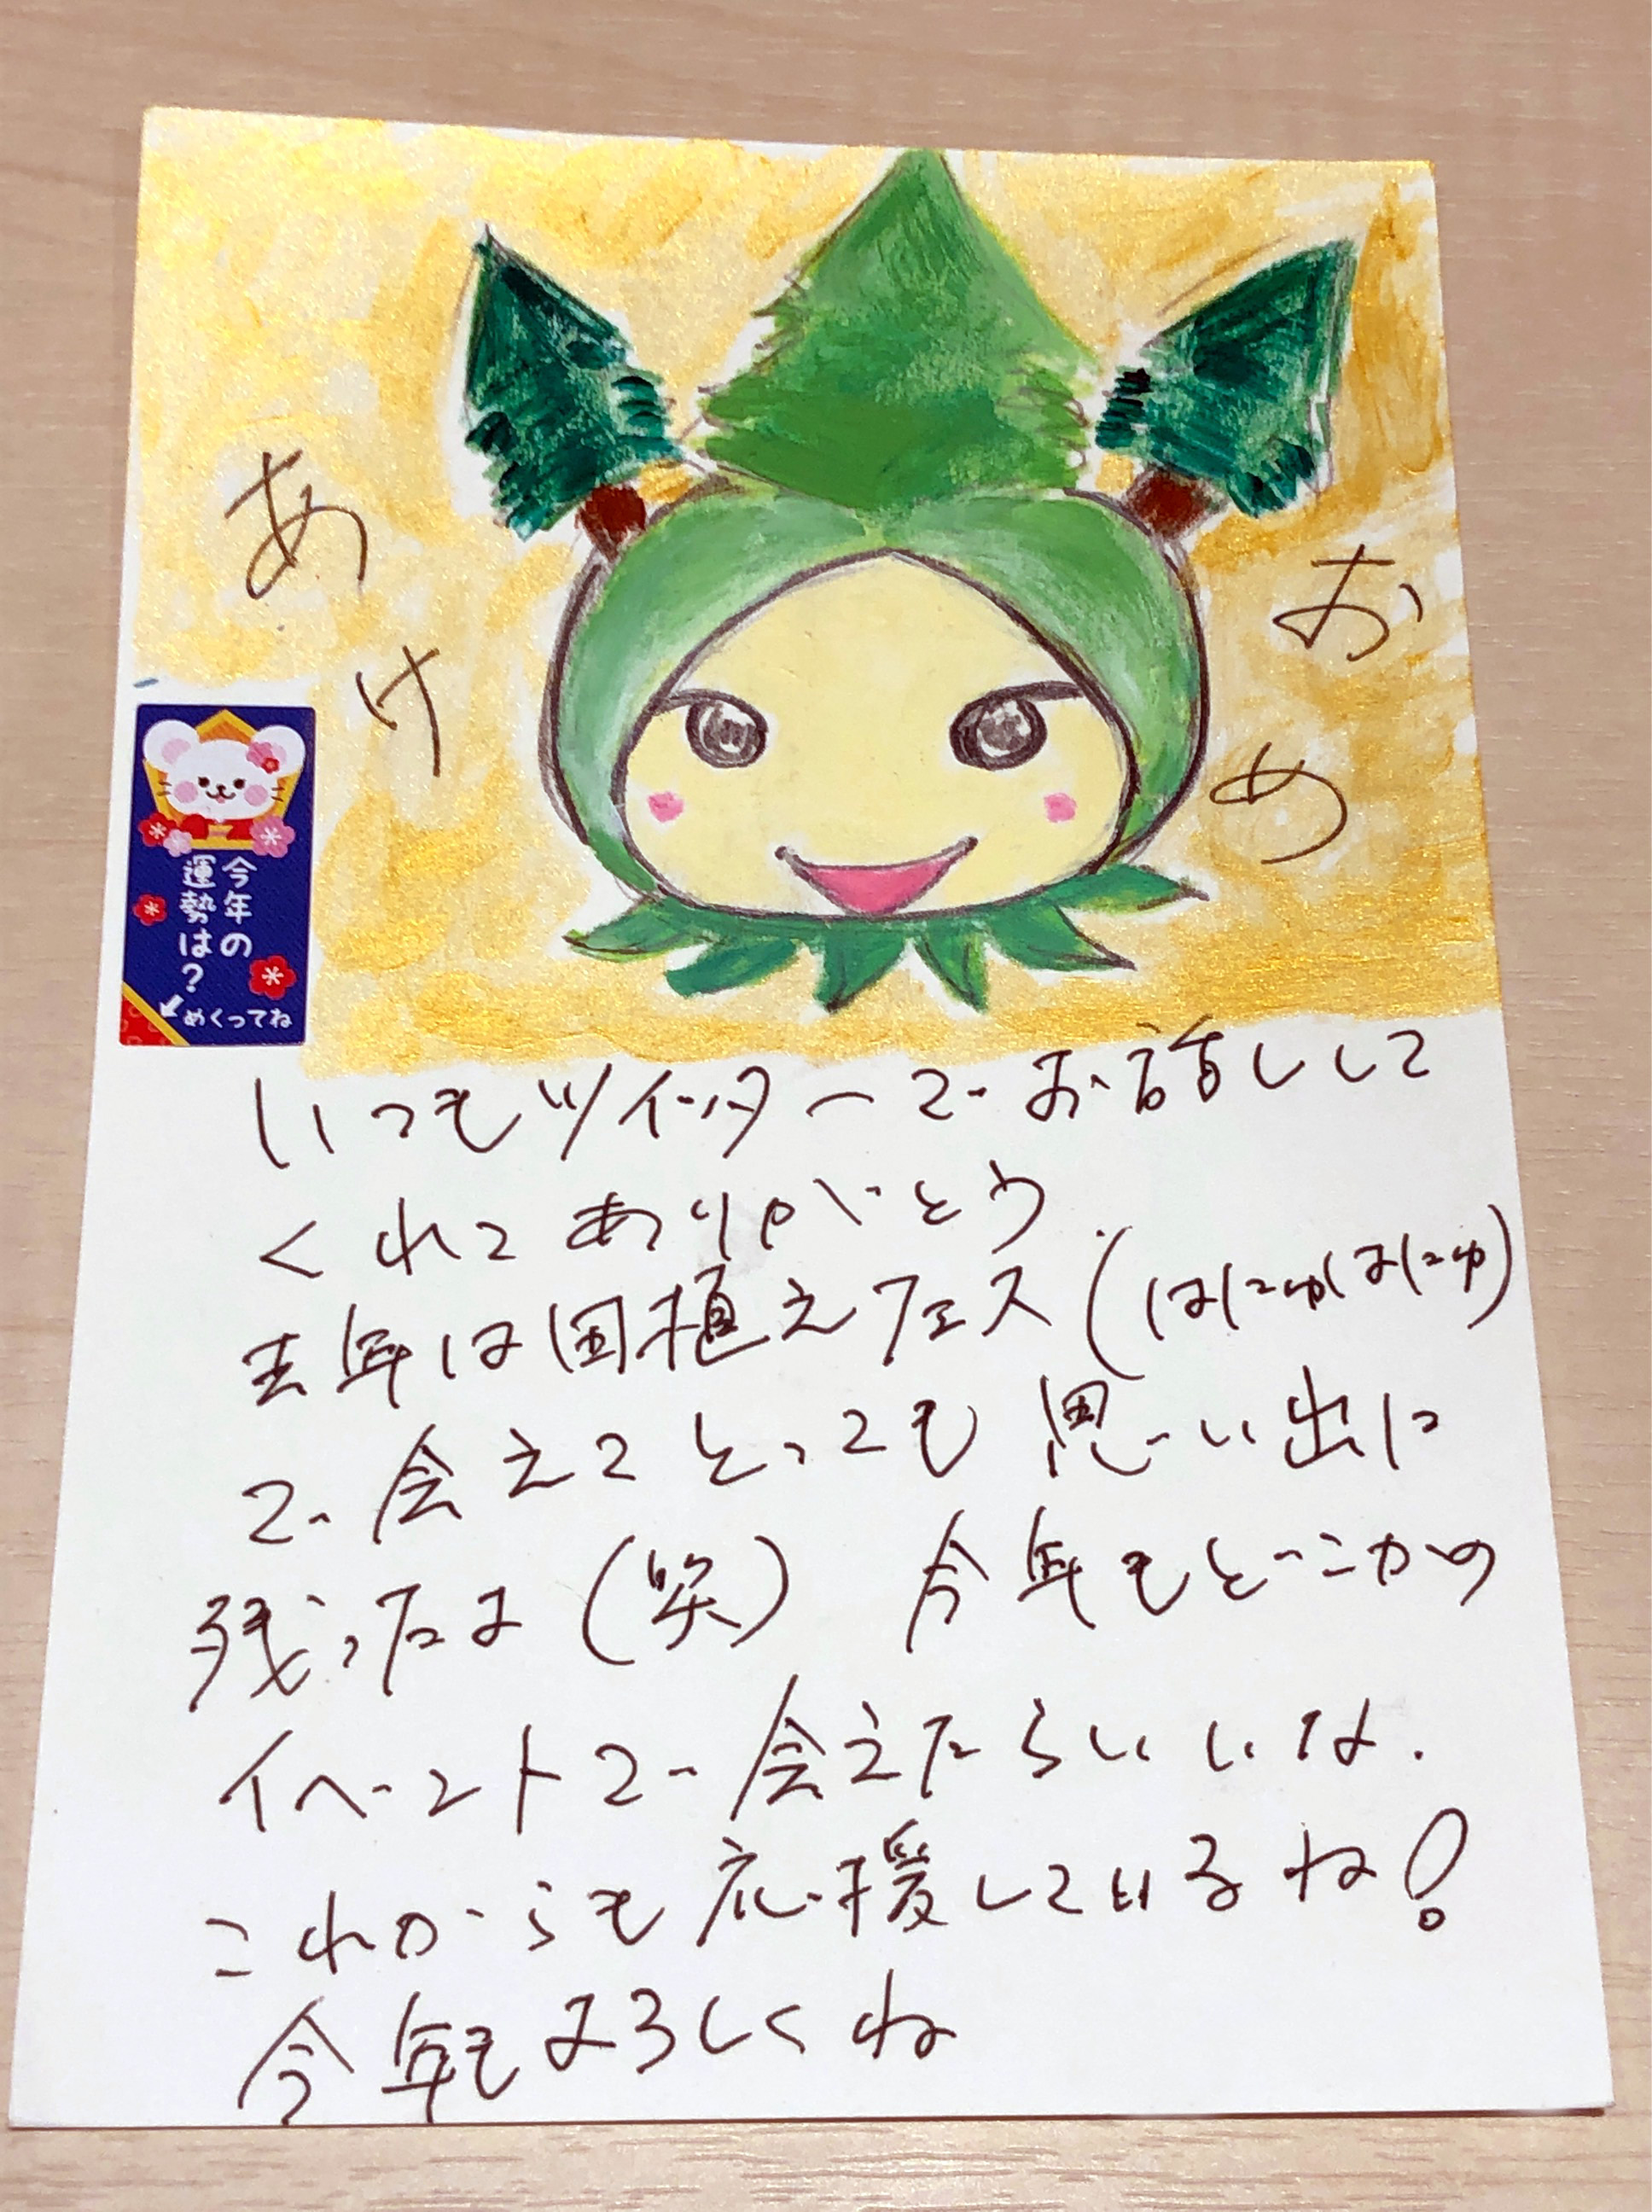 あけ
おめ
今年の
運勢は?
めくってね
いつもツイッターでお話しして
くれてありがとう
去年は田植えフェス(はにゅはにゅ)
で会えてとっても思い出に
残ったよ(笑) 今年もどこかの
イベントで会えたらいいな.
これからも応援しているね!
今年もよろしくね